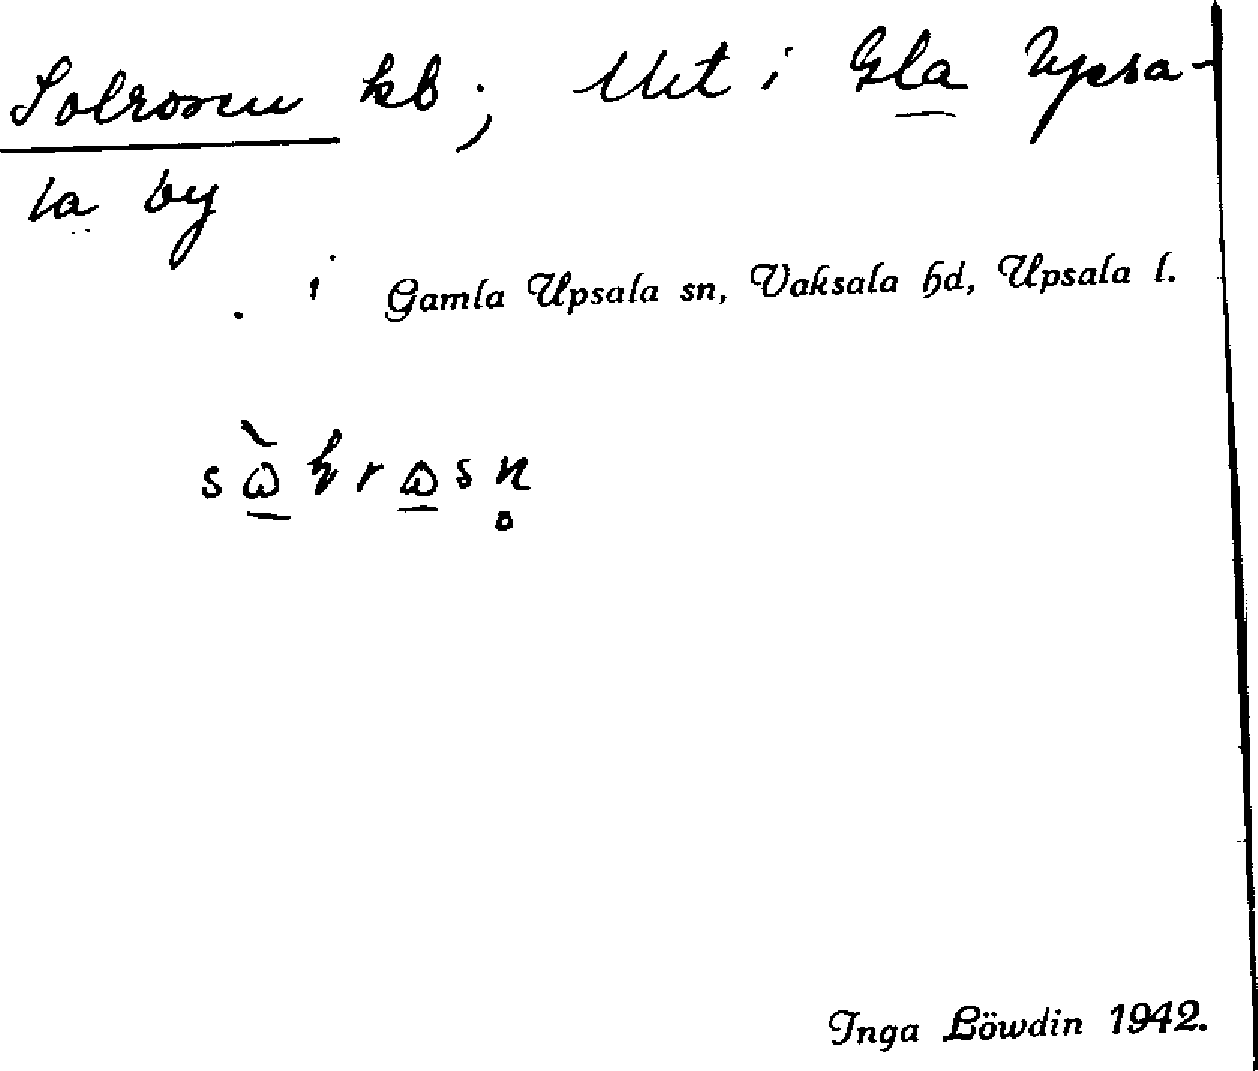 Solrosen kb; Utt i Gla Upsa-
la by
i Gamla Upsala sn, Vaksala hd, Upsala l.
Inga Löwdin 1942.